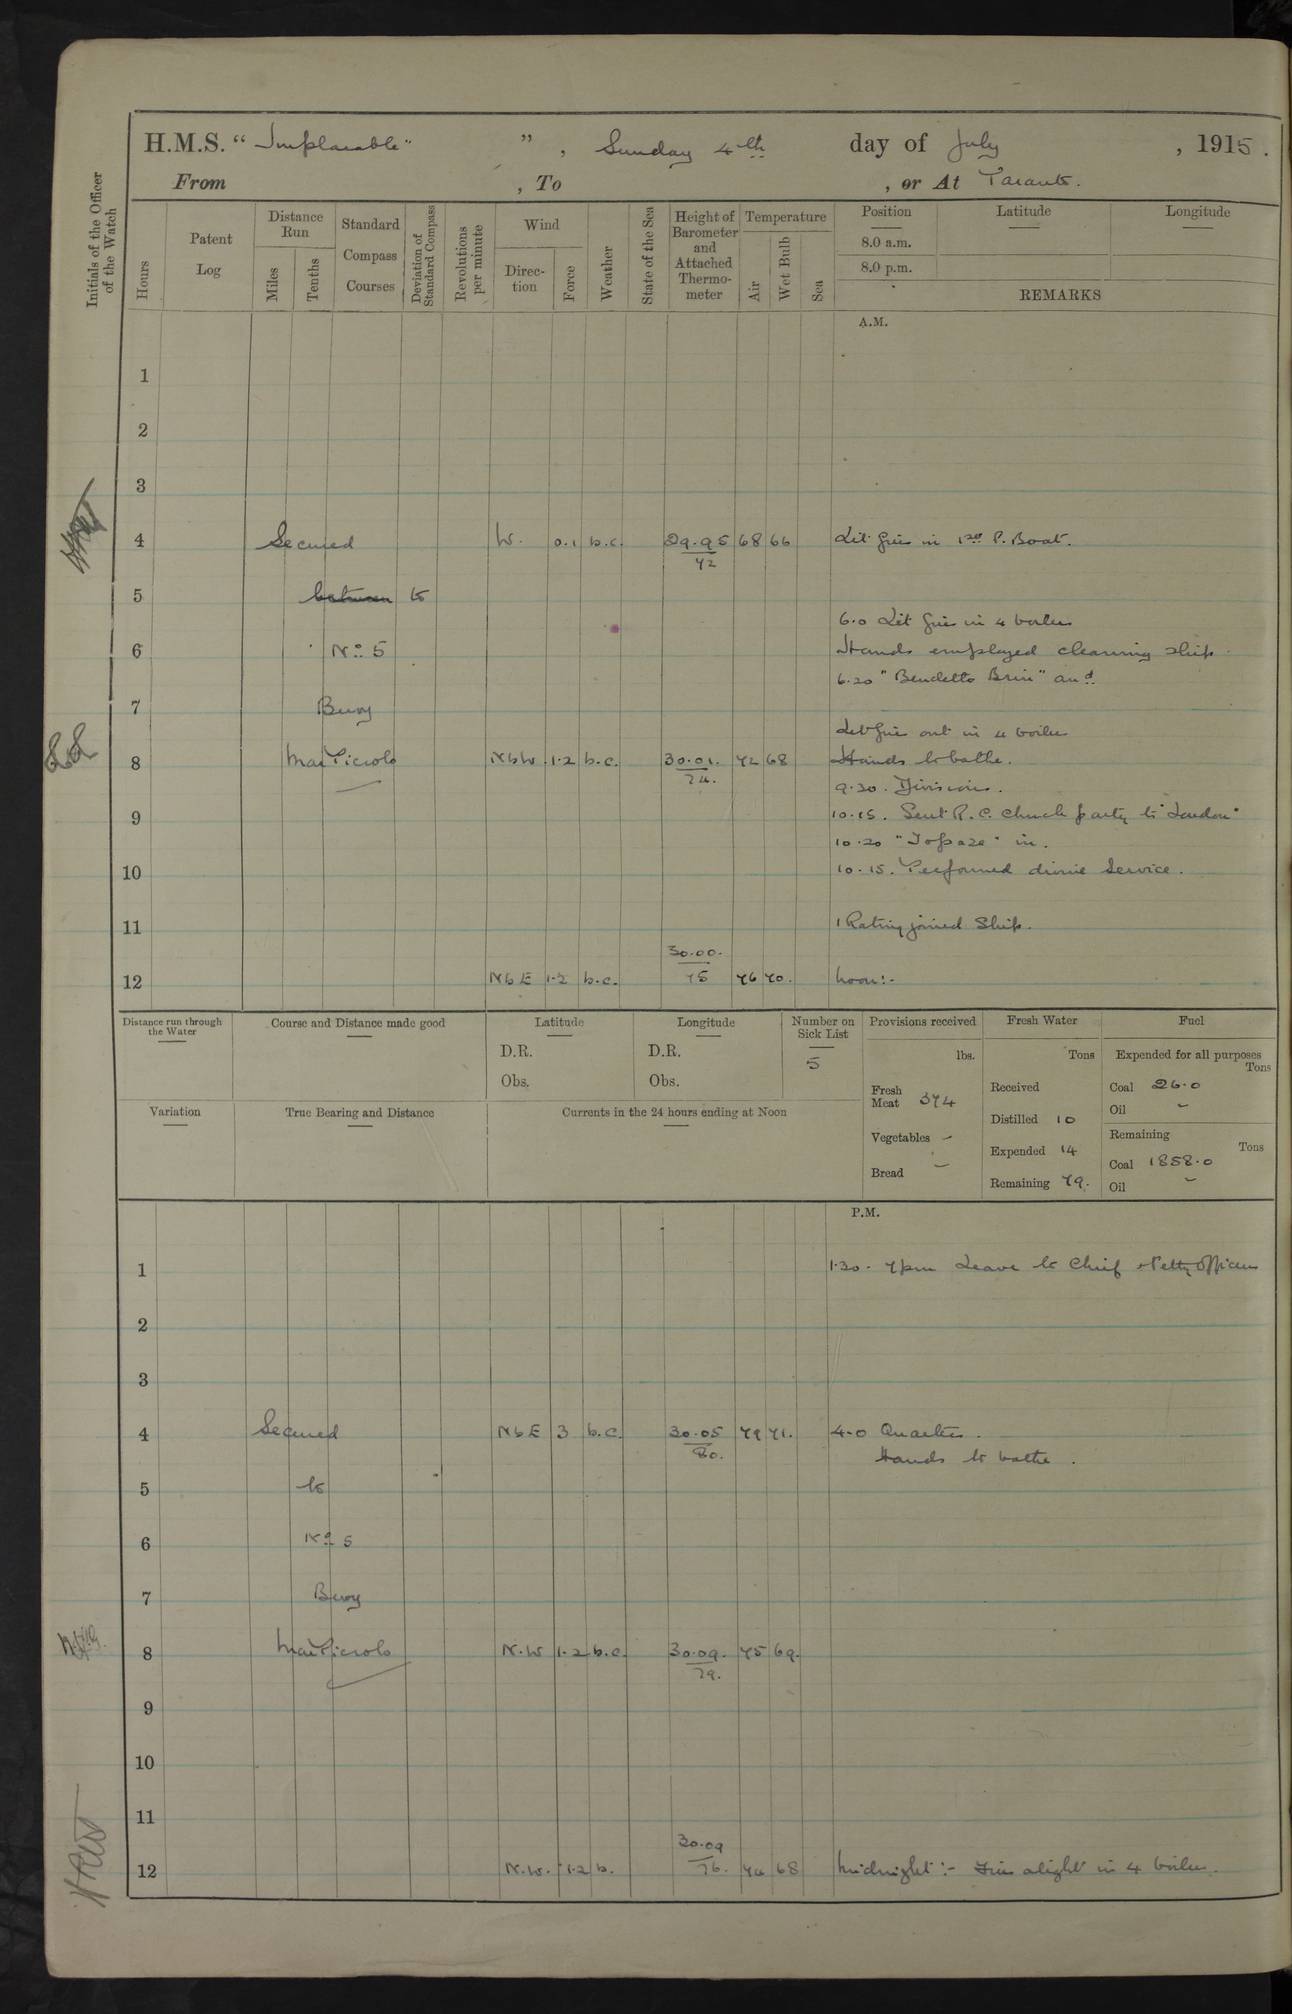 H.M.S. "Implacable" ", Sunday 4th day of July, 1915.
From , To , or At Taranto.
Initials of the Officer of the Watch
Hours
Patent Log
Distance Run
Miles
Tenths
Standard Compass Courses
Deviation of Standard Compass
Revolutions per minute
Wind
Direc-tion
Force
Weather
State of the Sea
Height of Barometer and Attached Thermo-meter
Temperature
Air
Wet Bulb
Sea
Position
Latitude
Longitude
8.0 a.m.
8.0 p.m.
REMARKS
A.M.
1
2
3
4 Secured W. 0.1 b.c. 29.95 68 66 Lit fires in 1st P. Boat.
72
5 between to
6.0 Lit fires in 4 boilers
6 No. 5 Hands employed cleaning ship.
6.20 "Bendetto Brin" and
7 Buoy
Let fires out in 4 boilers
8 Mar Piccolo NbW 1.2 b.c. 30.01. 72 68 Hands to bathe.
74.
9.30. Divisions.
9 10.15. Sent R.C. Church party to "London"
10.20 "Topaze" in.
10 10.15. Performed divine Service.
11 1 Rating joined Ship.
30.00.
12 NbE 1.2 b.c. 75 76 70. Noon:-
Distance run through the Water
Course and Distance made good
Latitude
D.R.
Obs.
Longitude
D.R.
Obs.
Number on Sick List
5
Provisions received
lbs.
Fresh Meat 374
Vegetables -
Bread -
Fresh Water
Tons
Received
Distilled 10
Expended 14
Remaining 79.
Fuel
Expended for all purposes
Tons
Coal 26.0
Oil -
Remaining
Tons
Coal 1858.0
Oil -
Variation
True Bearing and Distance
Currents in the 24 hours ending at Noon
P.M.
1 1.30. 7pm Leave to Chief & Petty Officers
2
3
4 Secured NbE 3 b.c. 30.05 79 71. 4.0 Quarters.
80.
Hands to bathe.
5 to
6 No. 5
7 Buoy
8 Mar Piccolo N.W 1.2 b.c. 30.09. 75 69.
79.
9
10
11
30.09
12 N.W. 1.2 b. 76. 74 68 Midnight:- Fires alight in 4 boilers.